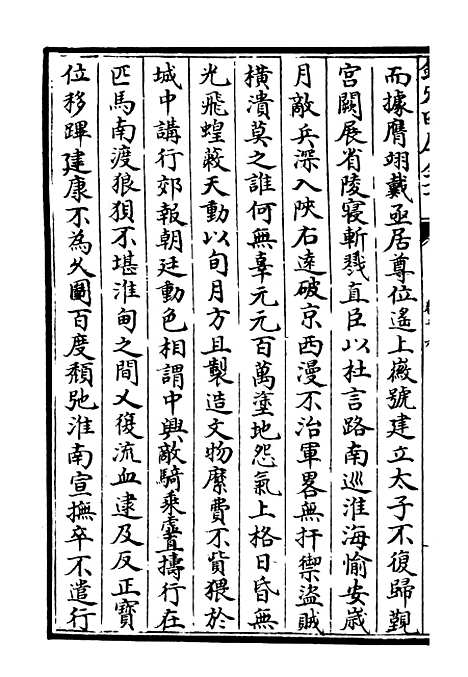 而據膺翊戴亟居尊位遙上徽號建立太子不復歸覲
宮闕展省陵寢斬戮直臣以杜言路南巡淮海愉安歳
月敵兵深入陜右逺破京西漫不治軍畧無扞禦盜賊
橫潰莫之誰何無辜元元百萬塗地怨氣上格日昏無
光飛蝗蔽天動以旬月方且製造文物縻費不貲猥於
城中講行郊報朝廷動色相謂中興敵騎乘虛直擣行在
匹馬南渡狼狽不堪淮甸之間又復流血逮及反正寳
位移蹕建康不為久圖百度頽弛淮南宣撫卒不遣行